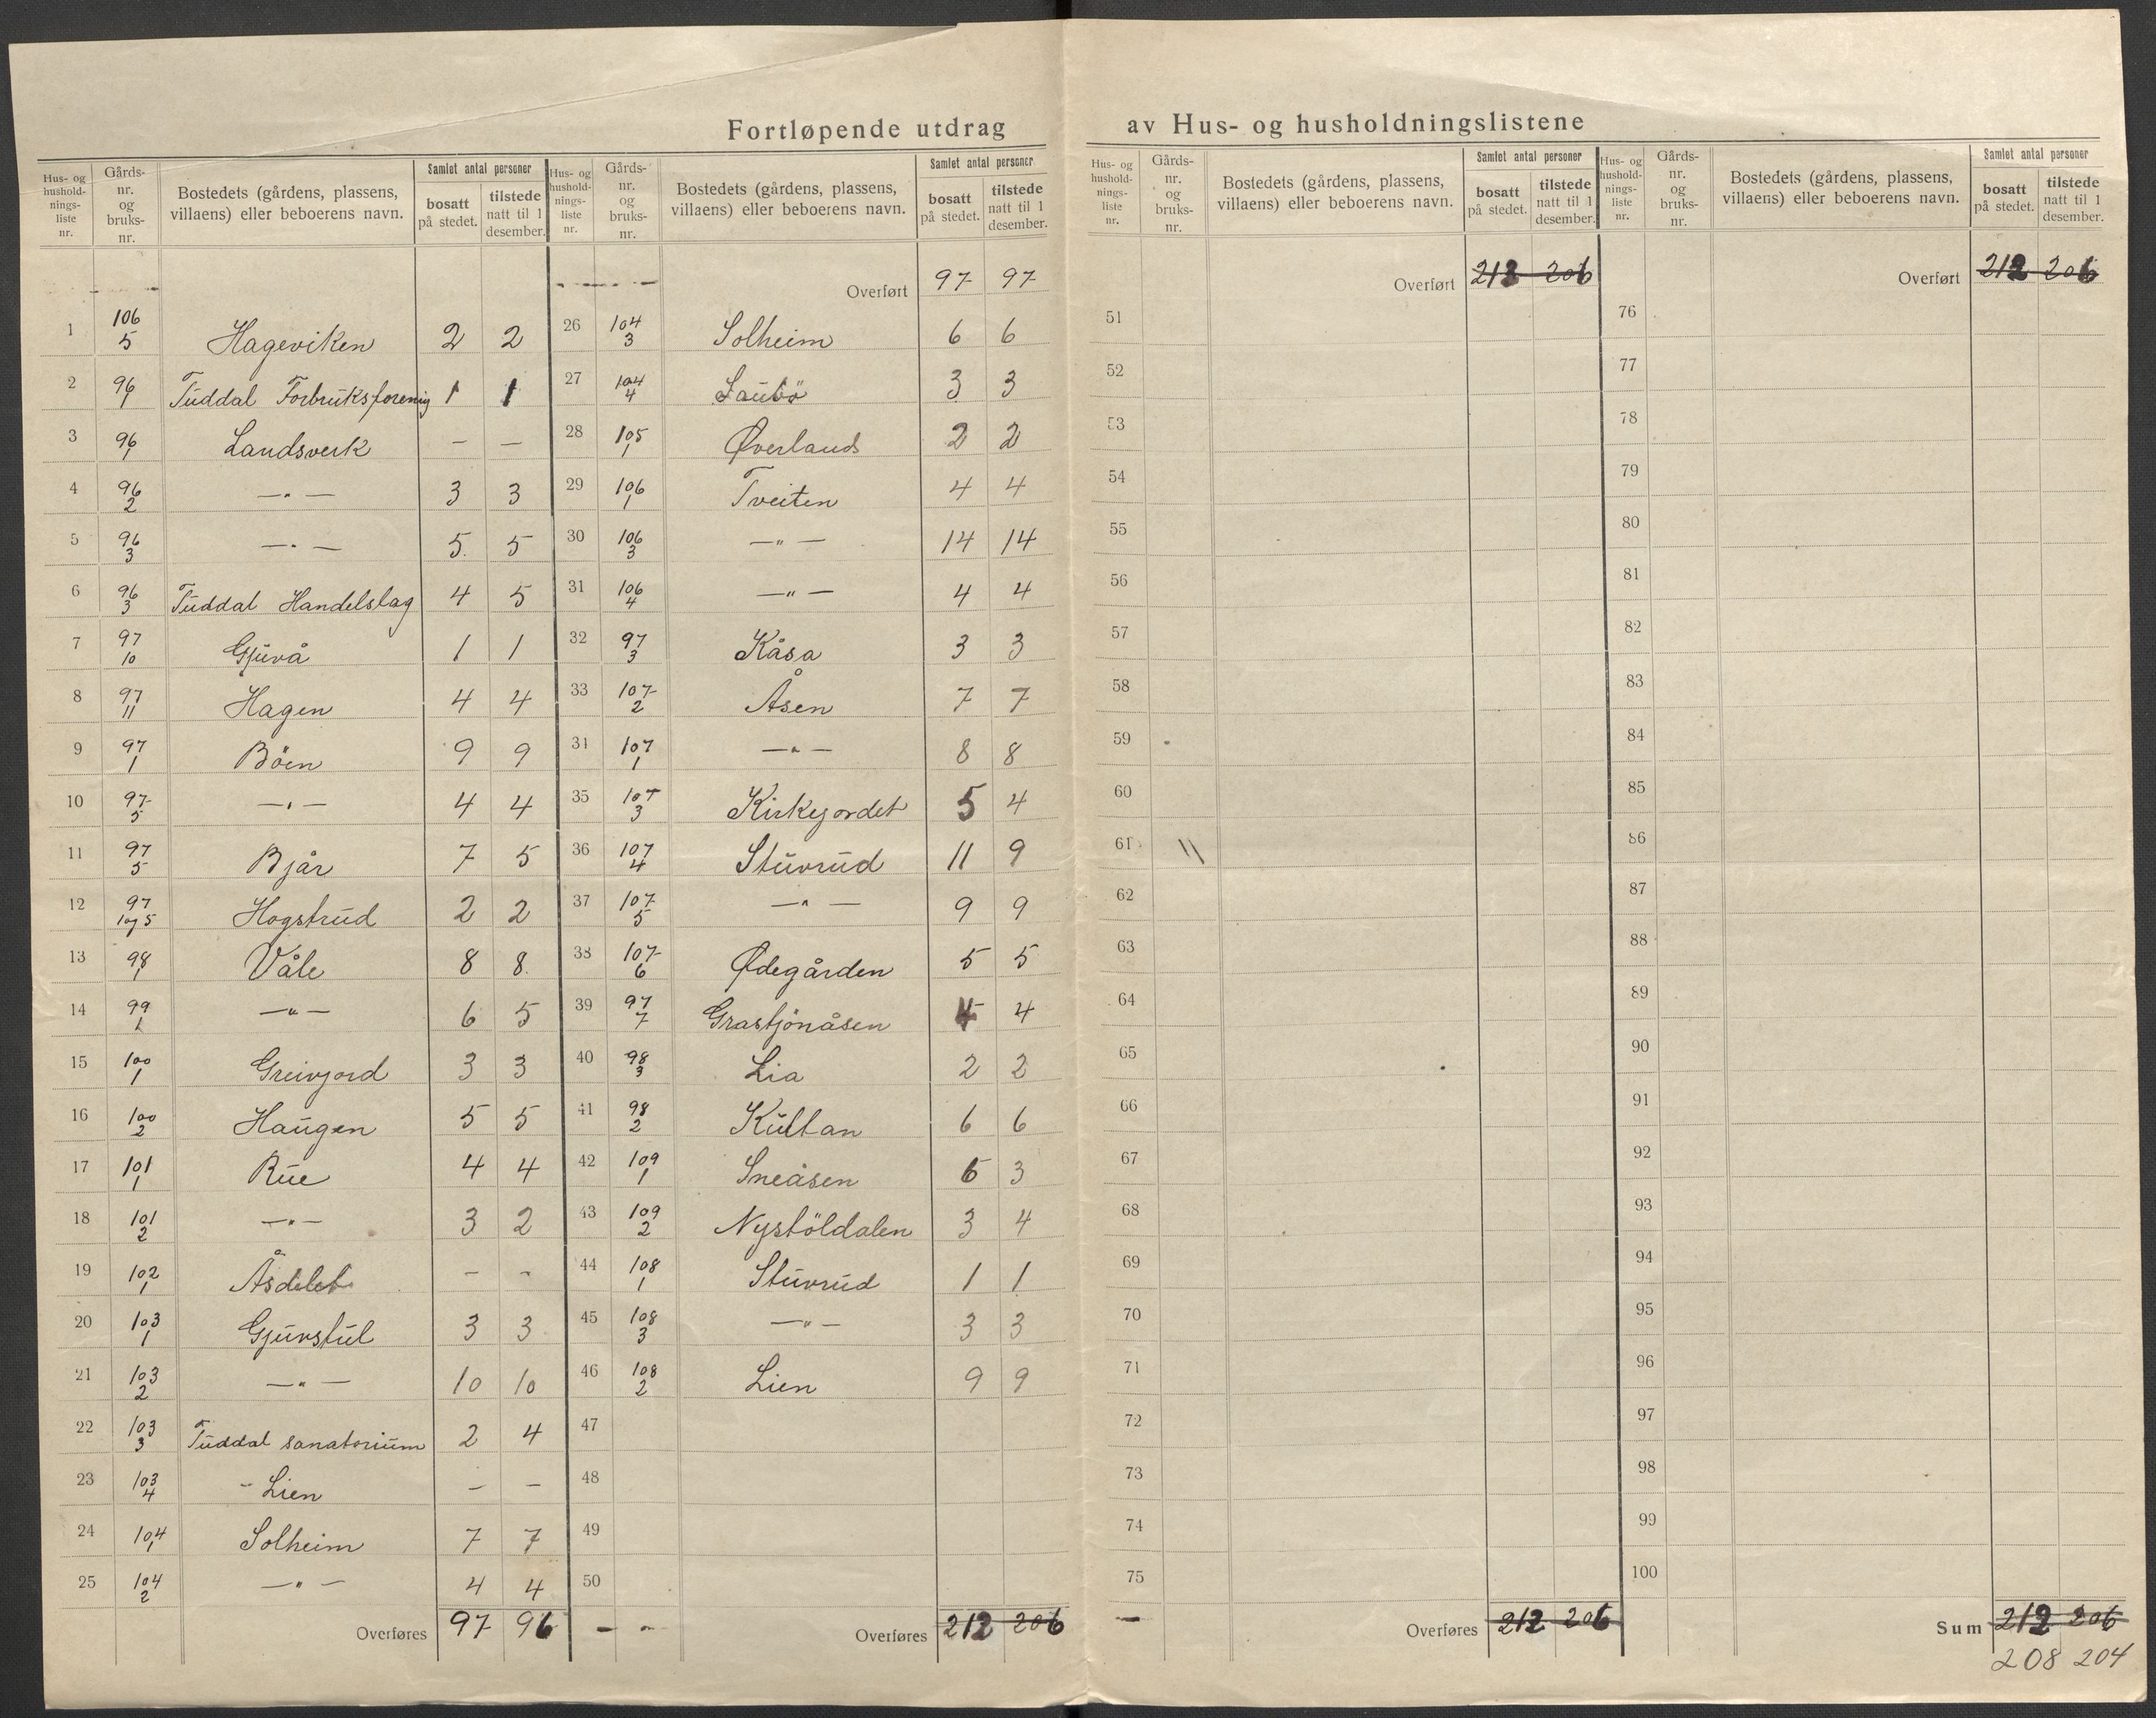 Fortløpende utdrag av Hus- og husholdningslistene
Hus- og hushold-nings-liste nr. | Gårds-nr. og bruks-nr. | Bostedets (gårdens, plassens, villaens) eller beboerens navn. | Samlet antal personer | bosatt på stedet. | tilstede natt til 1 desember.
1 106/5 Hageviken 2 2
2 96/1 Tuddal Forbruksforenig 1 1
3 96/1 Landsverk – –
4 96/2 —"— 3 3
5 96/3 —"— 5 5
6 96/3 Tuddal Handelslag 4 5
7 97/10 Gjuvå 1 1
8 97/11 Hagen 4 4
9 97/1 Böen 9 9
10 97/5 —"— 4 4
11 97/5 Bjår 7 5
12 97/1og5 Hogstrud 2 2
13 98/1 Våle 8 8
14 99/1 —"— 6 5
15 100/1 Greivjord 3 3
16 100/2 Haugen 5 5
17 101/1 Rue 4 4
18 101/2 —"— 3 2
19 102/1 Åsdelet – –
20 103/1 Gjuvstul 3 3
21 103/2 —"— 10 10
22 103/3 Tuddal sanatorium 2 4
23 103/4 - Lien – –
24 104/1 Solheim 7 7
25 104/2 —"— 4 4
Overføres 97 96
Hus- og hushold-nings-liste nr. | Gårds-nr. og bruks-nr. | Bostedets (gårdens, plassens, villaens) eller beboerens navn. | Samlet antal personer | bosatt på stedet. | tilstede natt til 1 desember.
Overført 97 97
26 104/3 Solheim 6 6
27 104/4 Laubö 3 3
28 105/1 Øverland 2 2
29 106/1 Tveiten 4 4
30 106/3 —"— 14 14
31 106/4 —"— 4 4
32 97/3 Kåsa 3 3
33 107/2 Åsen 7 7
34 107/1 —"— 8 8
35 107/3 Kirkejordet 5 4
36 107/4 Stuvrud 11 9
37 107/5 —"— 9 9
38 107/6 Ødegården 5 5
39 97/7 Grastjönåsen 4 4
40 98/3 Lia 2 2
41 98/2 Kultan 6 6
42 109/1 Sneåsen 6 3
43 109/2 Nystöldalen 3 4
44 108/1 Stuvrud 1 1
45 108/3 —"— 3 3
46 108/2 Lien 9 9
47
48
49
50
Overføres 212 206
Hus- og hushold-nings-liste nr. | Gårds-nr. og bruks-nr. | Bostedets (gårdens, plassens, villaens) eller beboerens navn. | Samlet antal personer | bosatt på stedet. | tilstede natt til 1 desember.
Overført 212 206
51
52
53
54
55
56
57
58
59
60
61
62
63
64
65
66
67
68
69
70
71
72
73
74
75
Overføres 212 206
Hus- og hushold-nings-liste nr. | Gårds-nr. og bruks-nr. | Bostedets (gårdens, plassens, villaens) eller beboerens navn. | Samlet antal personer | bosatt på stedet. | tilstede natt til 1 desember.
Overført 212 206
76
77
78
79
80
81
82
83
84
85
86
87
88
89
90
91
92
93
94
95
96
97
98
99
100
Sum 212 206
208 204